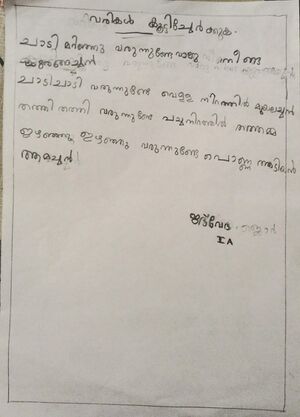 വരികൾ കൂട്ടിച്ചേർക്കുക
ചാടി മറിഞ്ഞു വരുന്നുണ്ടേ വാലു നീണ്ട
കുരങ്ങച്ചൻ
ചാടിചാടി വരുന്നുണ്ടേ വെള്ള നിറത്തിൽ മുയലച്ചൻ
തത്തി തത്തി വരുന്നുണ്ടേ പച്ചനിറത്തിൽ തത്തമ്മ
ഇഴഞ്ഞു ഇഴഞ്ഞു വരുന്നുണ്ടേ പൊണ്ണ തടിയൻ
ആമച്ചൻ
I A